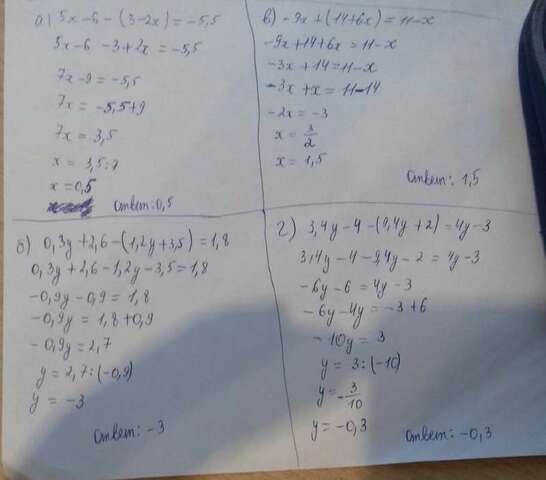 а) 5x-6-(3-2x)=-5,5
5x-6-3+2x=-5,5
7x-9=-5,5
7x=-5,5+9
7x=3,5
x=3,5:7
x=0,5
ответ: 0,5
б) 0,3y+2,6-(1,2y+3,5)=1,8
0,3y+2,6-1,2y-3,5=1,8
-0,9y-0,9=1,8
-0,9y=1,8+0,9
-0,9y=2,7
y=2,7:(-0,9)
y=-3
ответ: -3
в) -9x+(14+6x)=11-x
-9x+14+6x=11-x
-3x+14=11-x
-3x+x=11-14
-2x=-3
x=3/2
x=1,5
ответ: 1,5
г) 3,4y-4-(9,4y+2)=4y-3
3,4y-4-9,4y-2=4y-3
-6y-6=4y-3
-6y-4y=-3+6
-10y=3
y=3:(-10)
y=-3/10
y=-0,3
ответ: -0,3